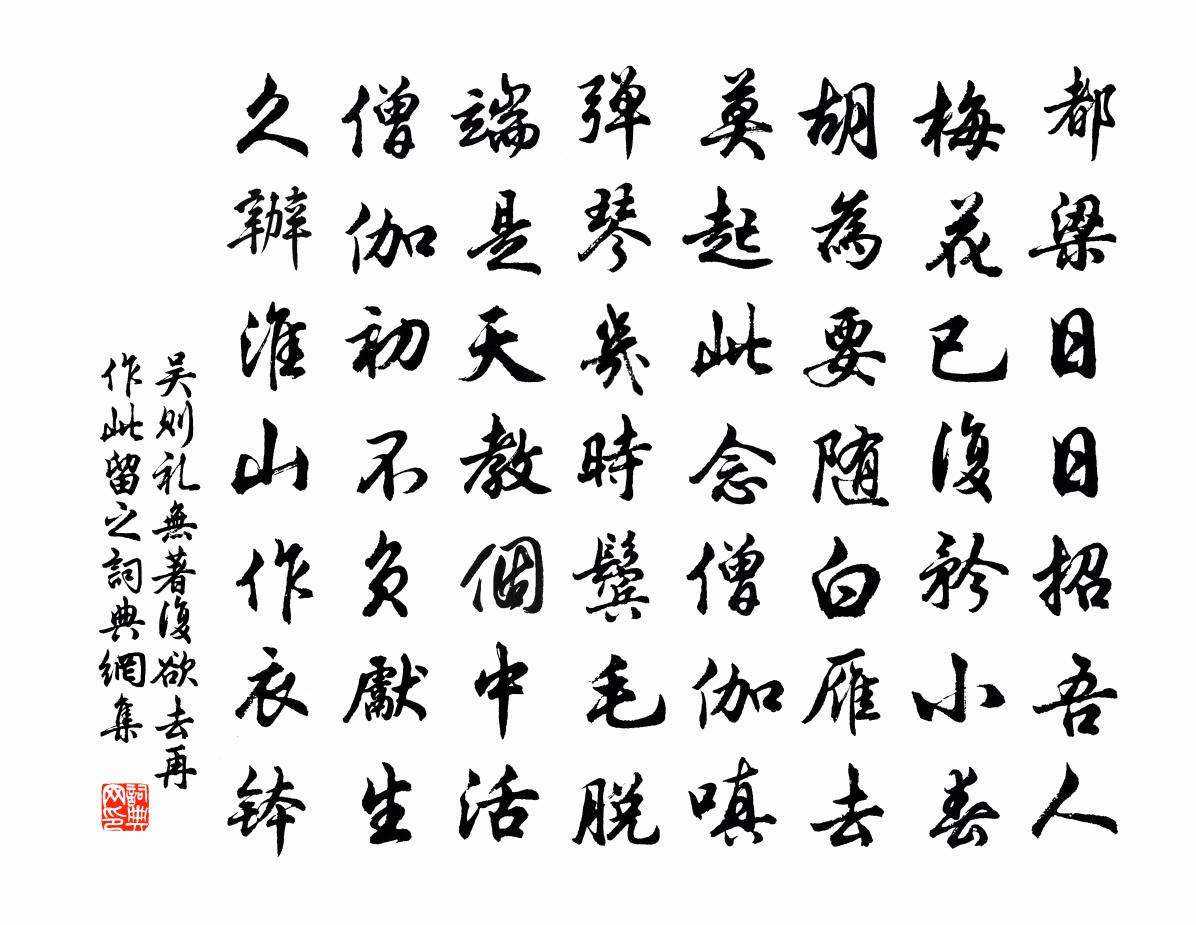 都梁日日招吾人
梅花已復矜小春
胡為要随白雁去
莫起此念僧伽嗔
弹琴幾時鬓毛脱
端是天教個中活
僧伽初不負獻生
久辦淮山作衣钵
吴则礼無著復欲去再
作此留之詞典網集
詞典
网印